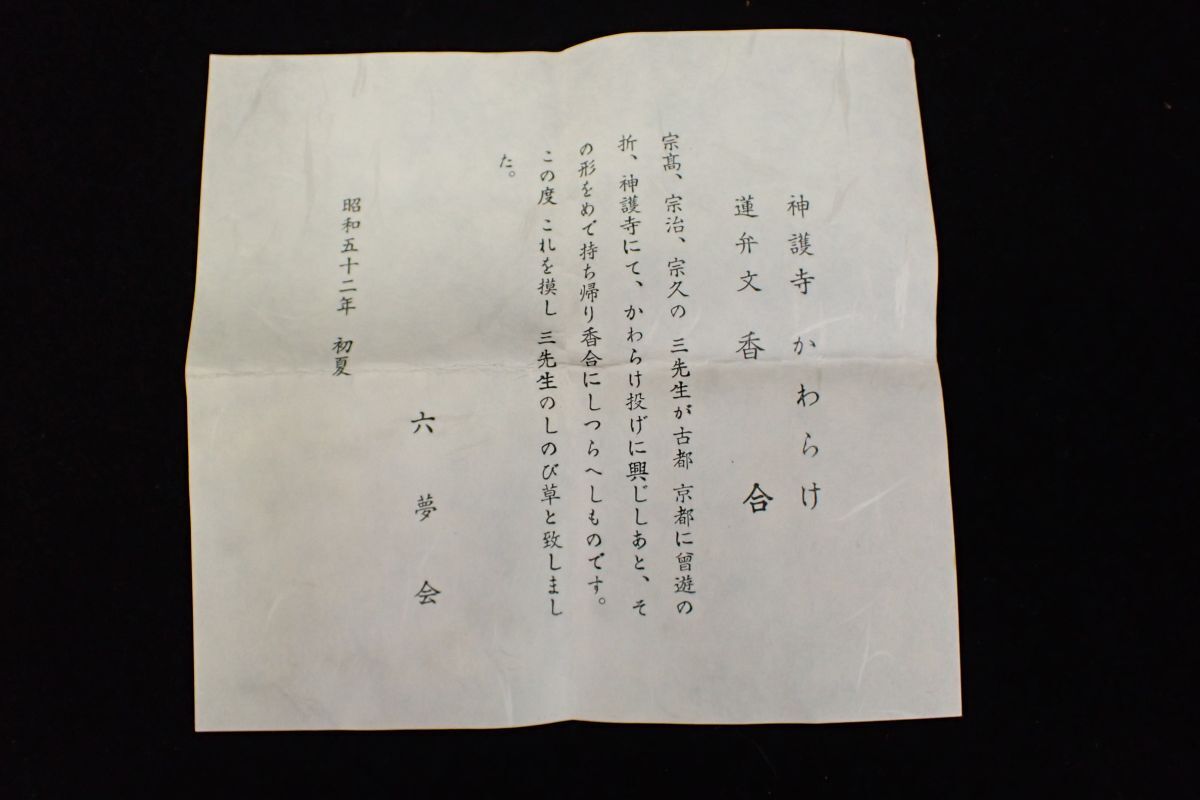 神護寺 かわらけ
蓮弁文 香合
宗髙、宗治、宗久の 三先生が古都 京都に曾遊の
折、神護寺にて、かわらけ投げに興じしあと、そ
の形をめで持ち帰り香合にしつらへしものです。
この度 これを摸し 三先生のしのび草と致しまし
た。
六夢会
昭和五十二年 初夏